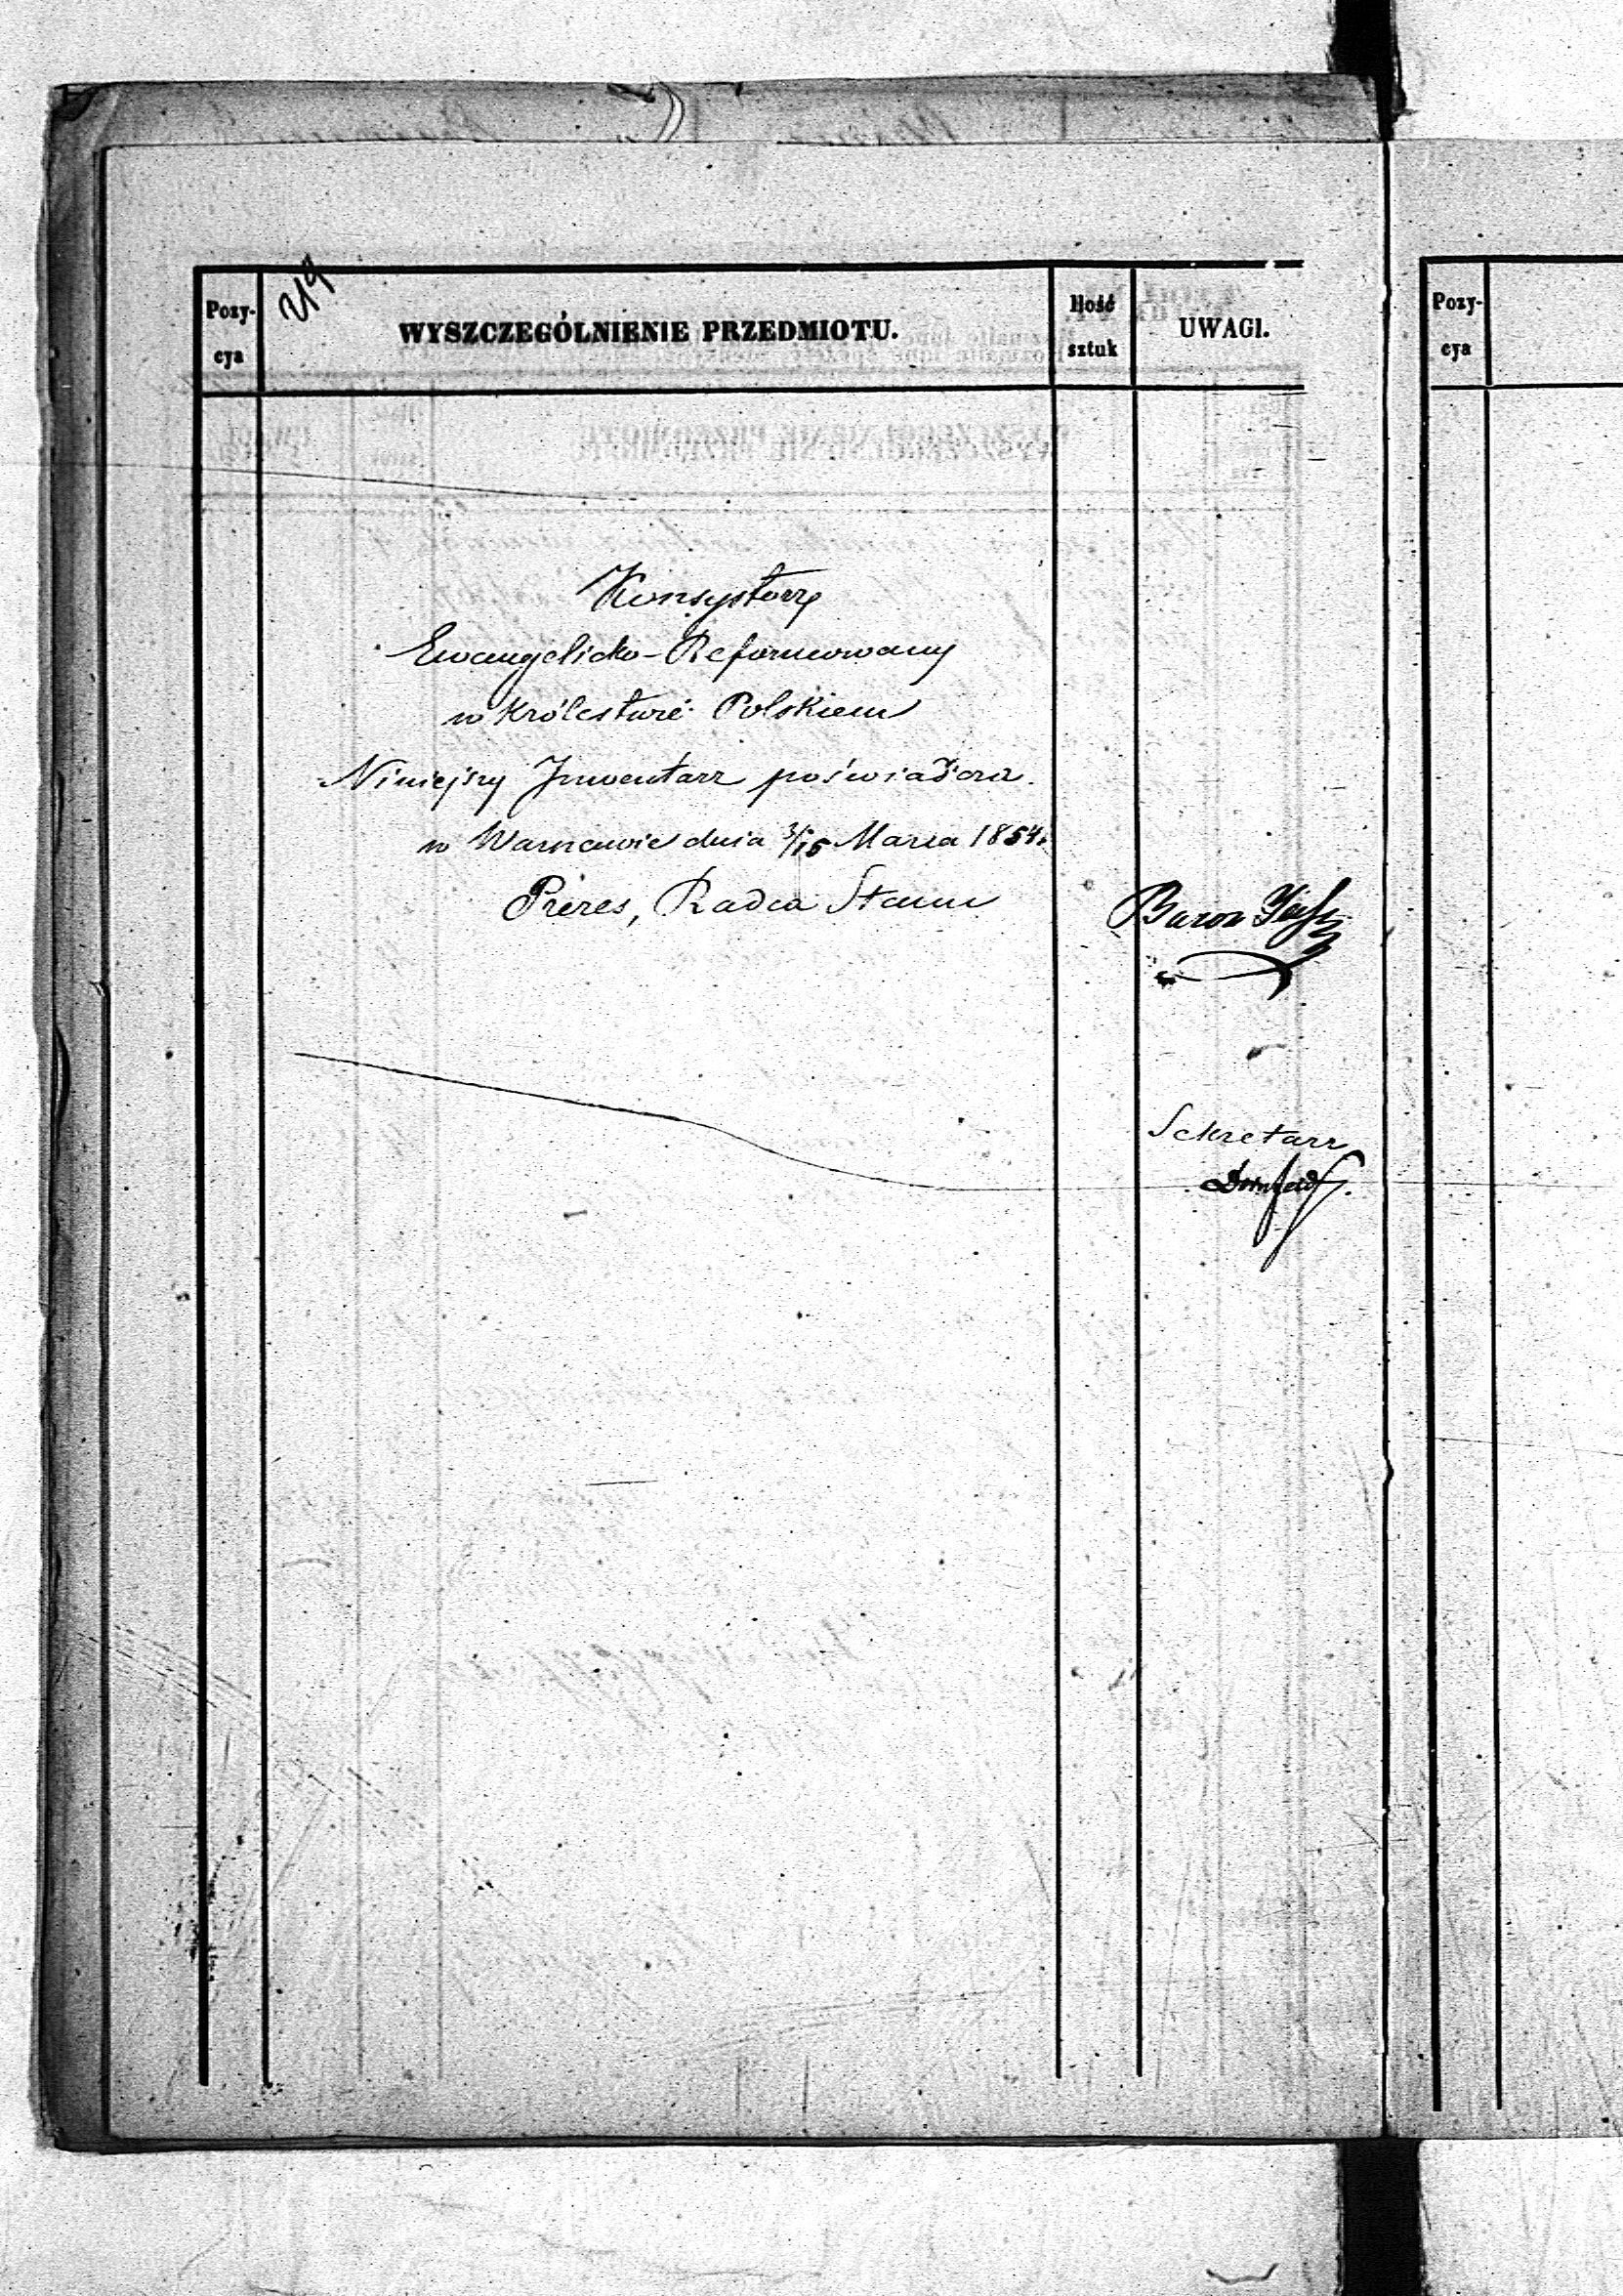 219
Pozy-
cya
WYSZCZEGÓLNIENIE PRZEDMIOTU.
Ilość
sztuk
UWAGI.
Konsystorz
Ewangelicko-Reformowany
w Królestwie Polskiem
Niniejszy Inwentarz poświadcza.
w Warszawie dnia 3/15 Marca 1854.
Prezes, Radca Stanu
Baron
Sekretarz
Pozy-
cya